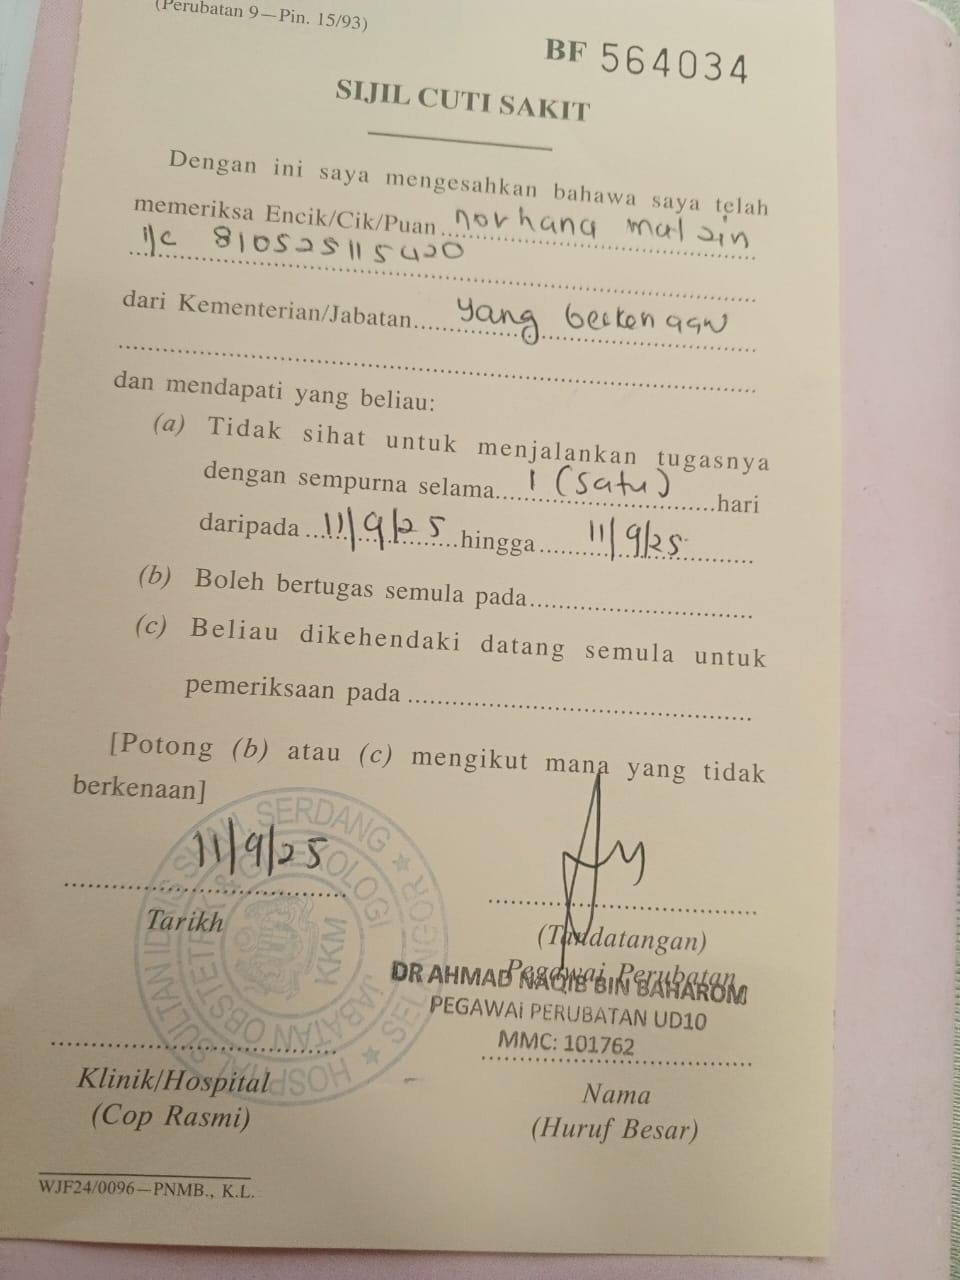 (Perubatan 9—Pin. 15/93)
BF 564034
SIJIL CUTI SAKIT
Dengan ini saya mengesahkan bahawa saya telah
memeriksa Encik/Cik/Puan norhana mat zin
i/c 810525115420
dari Kementerian/Jabatan yang berkenaan
dan mendapati yang beliau:
(a) Tidak sihat untuk menjalankan tugasnya
dengan sempurna selama 1 (satu) hari
daripada 11/9/25 hingga 11/9/25
(b) Boleh bertugas semula pada
(c) Beliau dikehendaki datang semula untuk
pemeriksaan pada
[Potong (b) atau (c) mengikut mana yang tidak
berkenaan]
11/9/25
Tarikh
(Tandatangan)
Pegawai Perubatan
DR AHMAD NAQIB BIN BAHAROM
PEGAWAi PERUBATAN UD10
MMC: 101762
HOSPITAL SULTAN IDRIS SHAH SERDANG ★ SELANGOR ★
JABATAN OBSTETRIK & GINEKOLOGI
KKM
Klinik/Hospital
(Cop Rasmi)
Nama
(Huruf Besar)
WJF24/0096—PNMB., K.L.